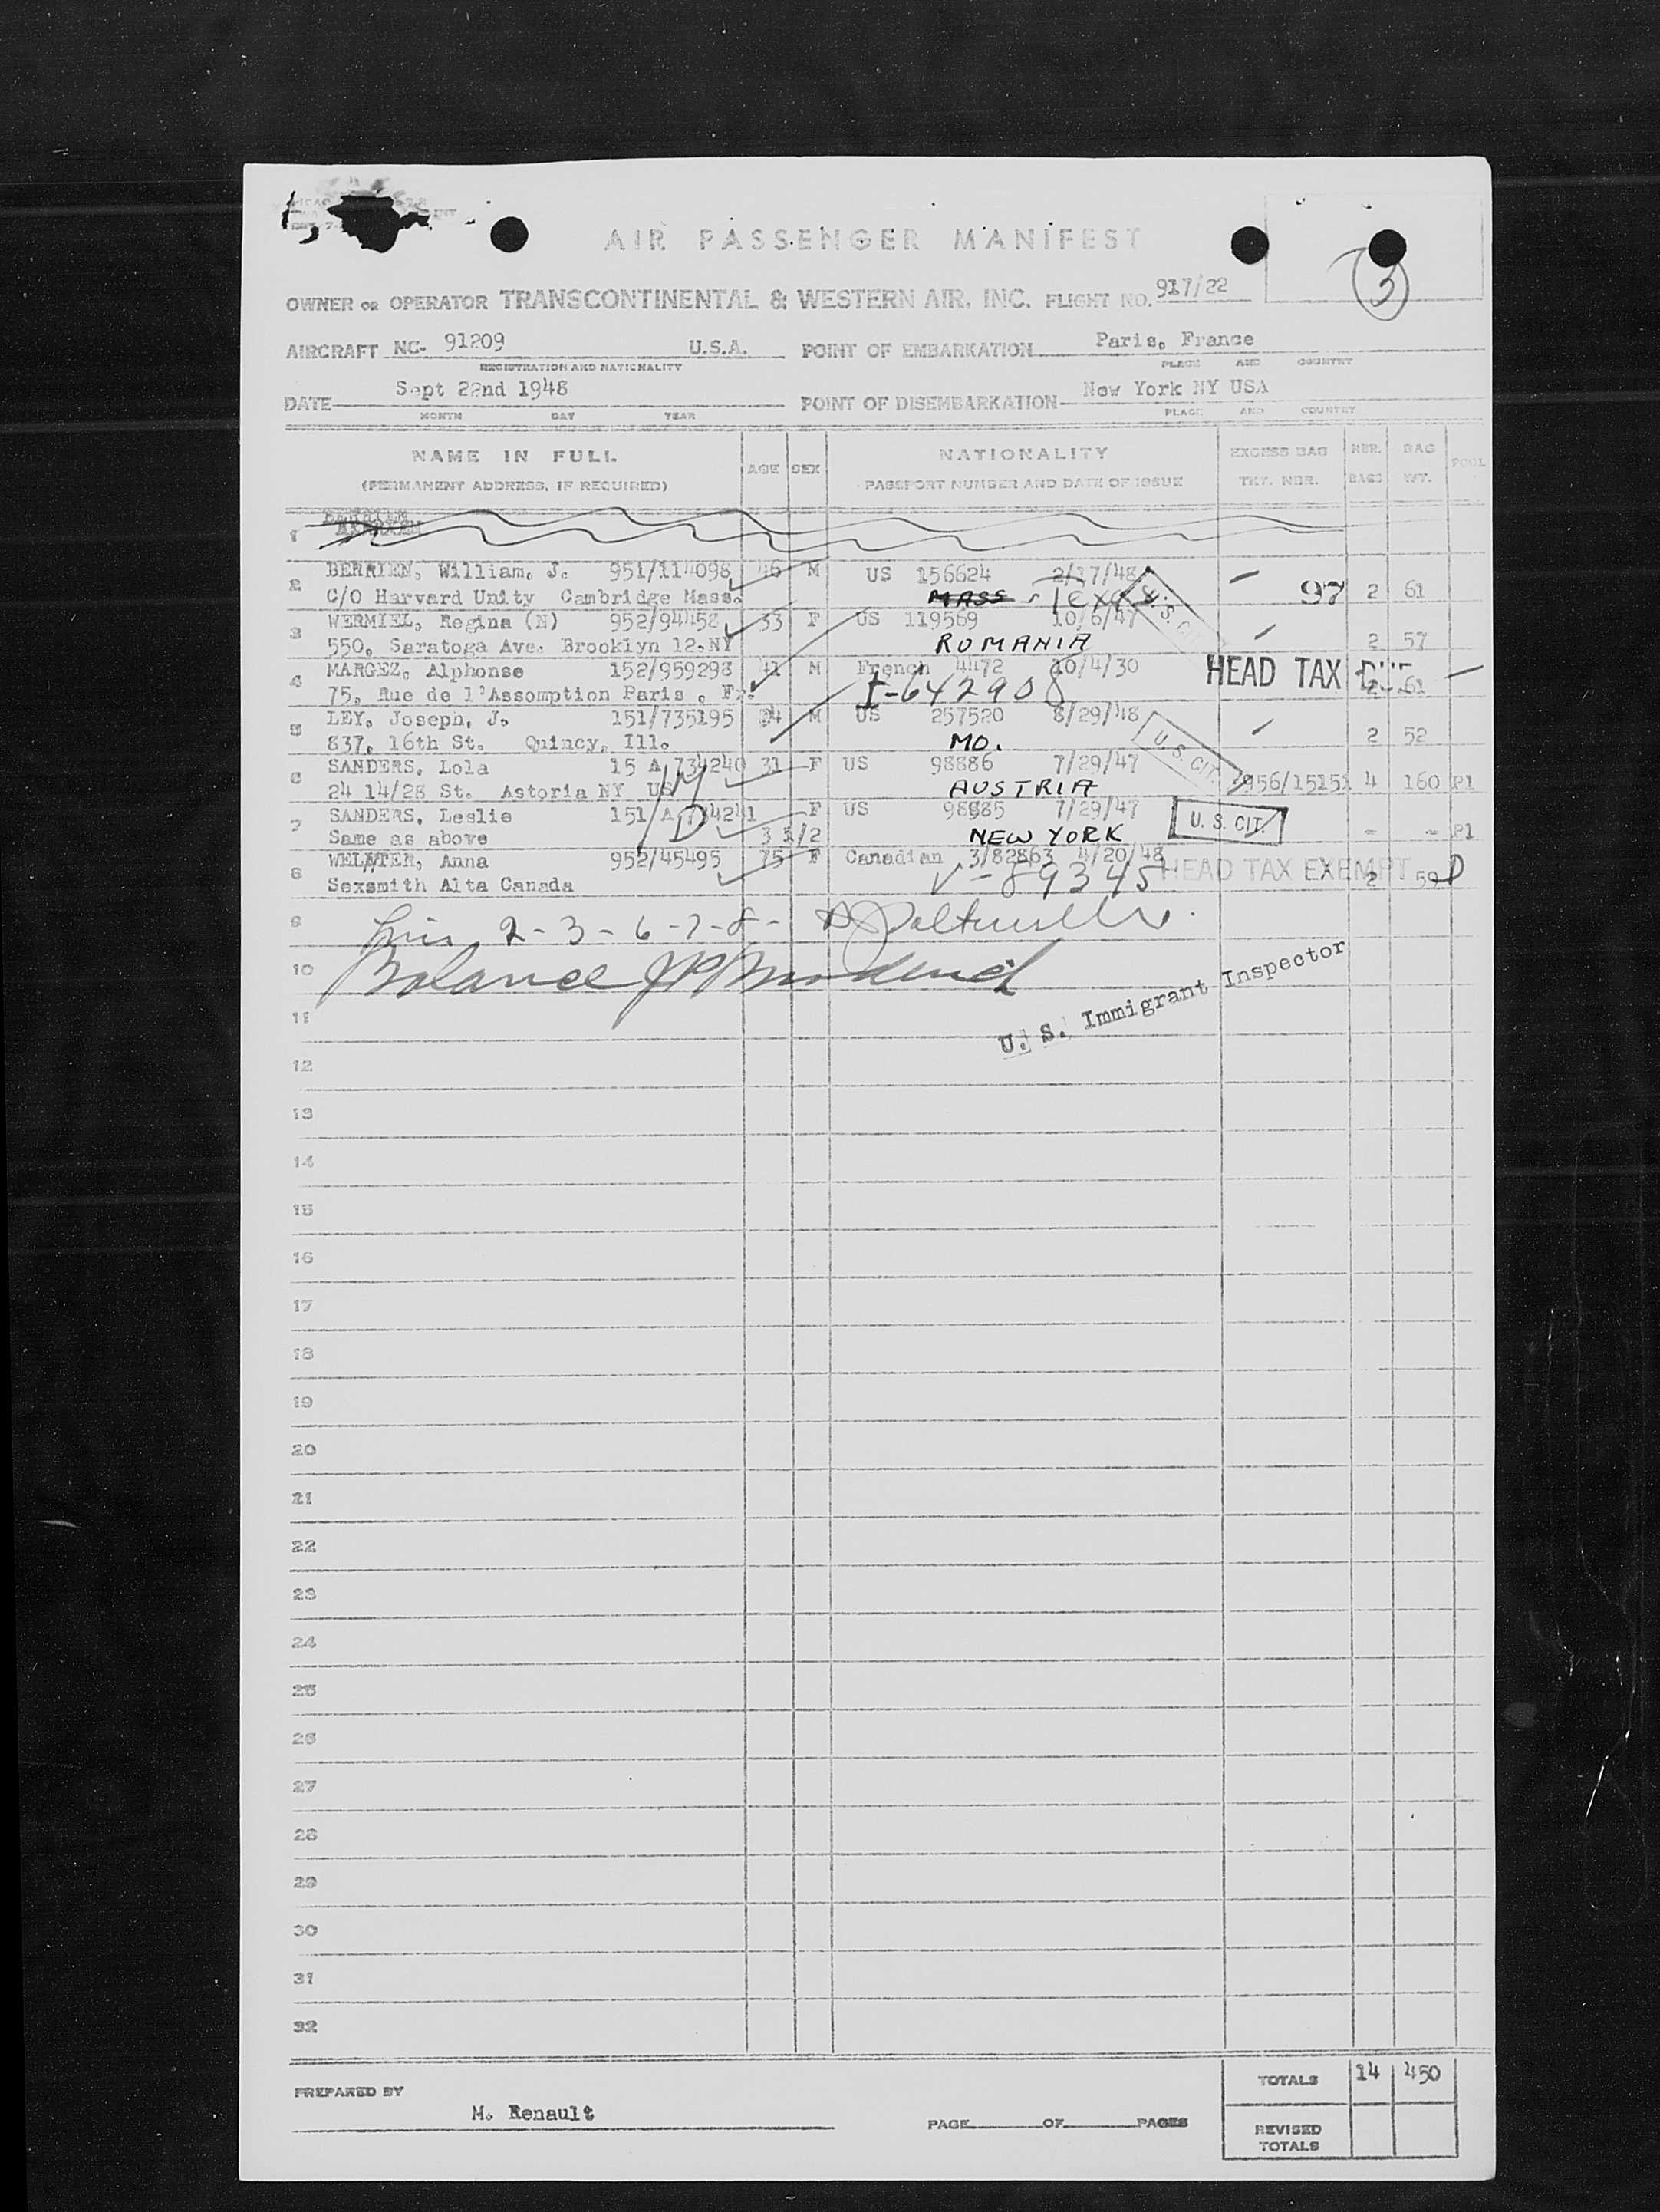 AIR PASSENGER MANIFEST
3
OWNER OR OPERATOR TRANSCONTINENTAL & WESTERN AIR, INC. FLIGHT NO. 917/22
AIRCRAFT NC- 91209 U.S.A. POINT OF EMBARKATION Paris, France
REGISTRATION AND NATIONALITY PLACE AND COUNTRY
DATE Sept 22nd 1948 POINT OF DISEMBARKATION New York NY USA
MONTH DAY YEAR PLACE AND COUNTRY
NAME IN FULL AGE SEX NATIONALITY EXCESS BAG NBR. BAG POOL
(PERMANENT ADDRESS, IF REQUIRED) PASSPORT NUMBER AND DATE OF ISSUE TKT. NBR. BAGS WT.
1
2 BERRIEN, William, J. 951/114098 46 M US 156624 2/17/48 97 2 61
C/O Harvard Unity Cambridge Mass. MASS - Texas U.S. CIT.
3 WERMIEL, Regina (N) 952/94458 33 F US 119569 10/6/47 2 57
550, Saratoga Ave. Brooklyn 12,NY ROMANIA
4 MARGEZ, Alphonse 152/959298 41 M French 4472 10/4/30 HEAD TAX 2 61
75, Rue de l'Assomption Paris , Fr. I-642908
5 LEY, Joseph, J. 151/735195 24 M US 257520 8/29/48 2 52
837, 16th St. Quincy, Ill. MO. U.S. CIT.
6 SANDERS, Lola 15 A 734240 31 F US 98886 7/29/47 956/15151 4 160 P1
24 14/28 St. Astoria NY US AUSTRIA
7 SANDERS, Leslie 151/A 734241 F US 98985 7/29/47 U.S. CIT. - - P1
Same as above 3 1/2 NEW YORK
8 WELTER, Anna 952/45495 75 F Canadian 3/82863 4/20/48 HEAD TAX EXEMPT 2 59 D
Sexsmith Alta Canada V-89345
9 2-3-6-7-8-
10 Balance
11 U. S. Immigrant Inspector
12
13
14
15
16
17
18
19
20
21
22
23
24
25
26
27
28
29
30
31
32
TOTALS 14 450
PREPARED BY M. Renault PAGE OF PAGES
REVISED
TOTALS